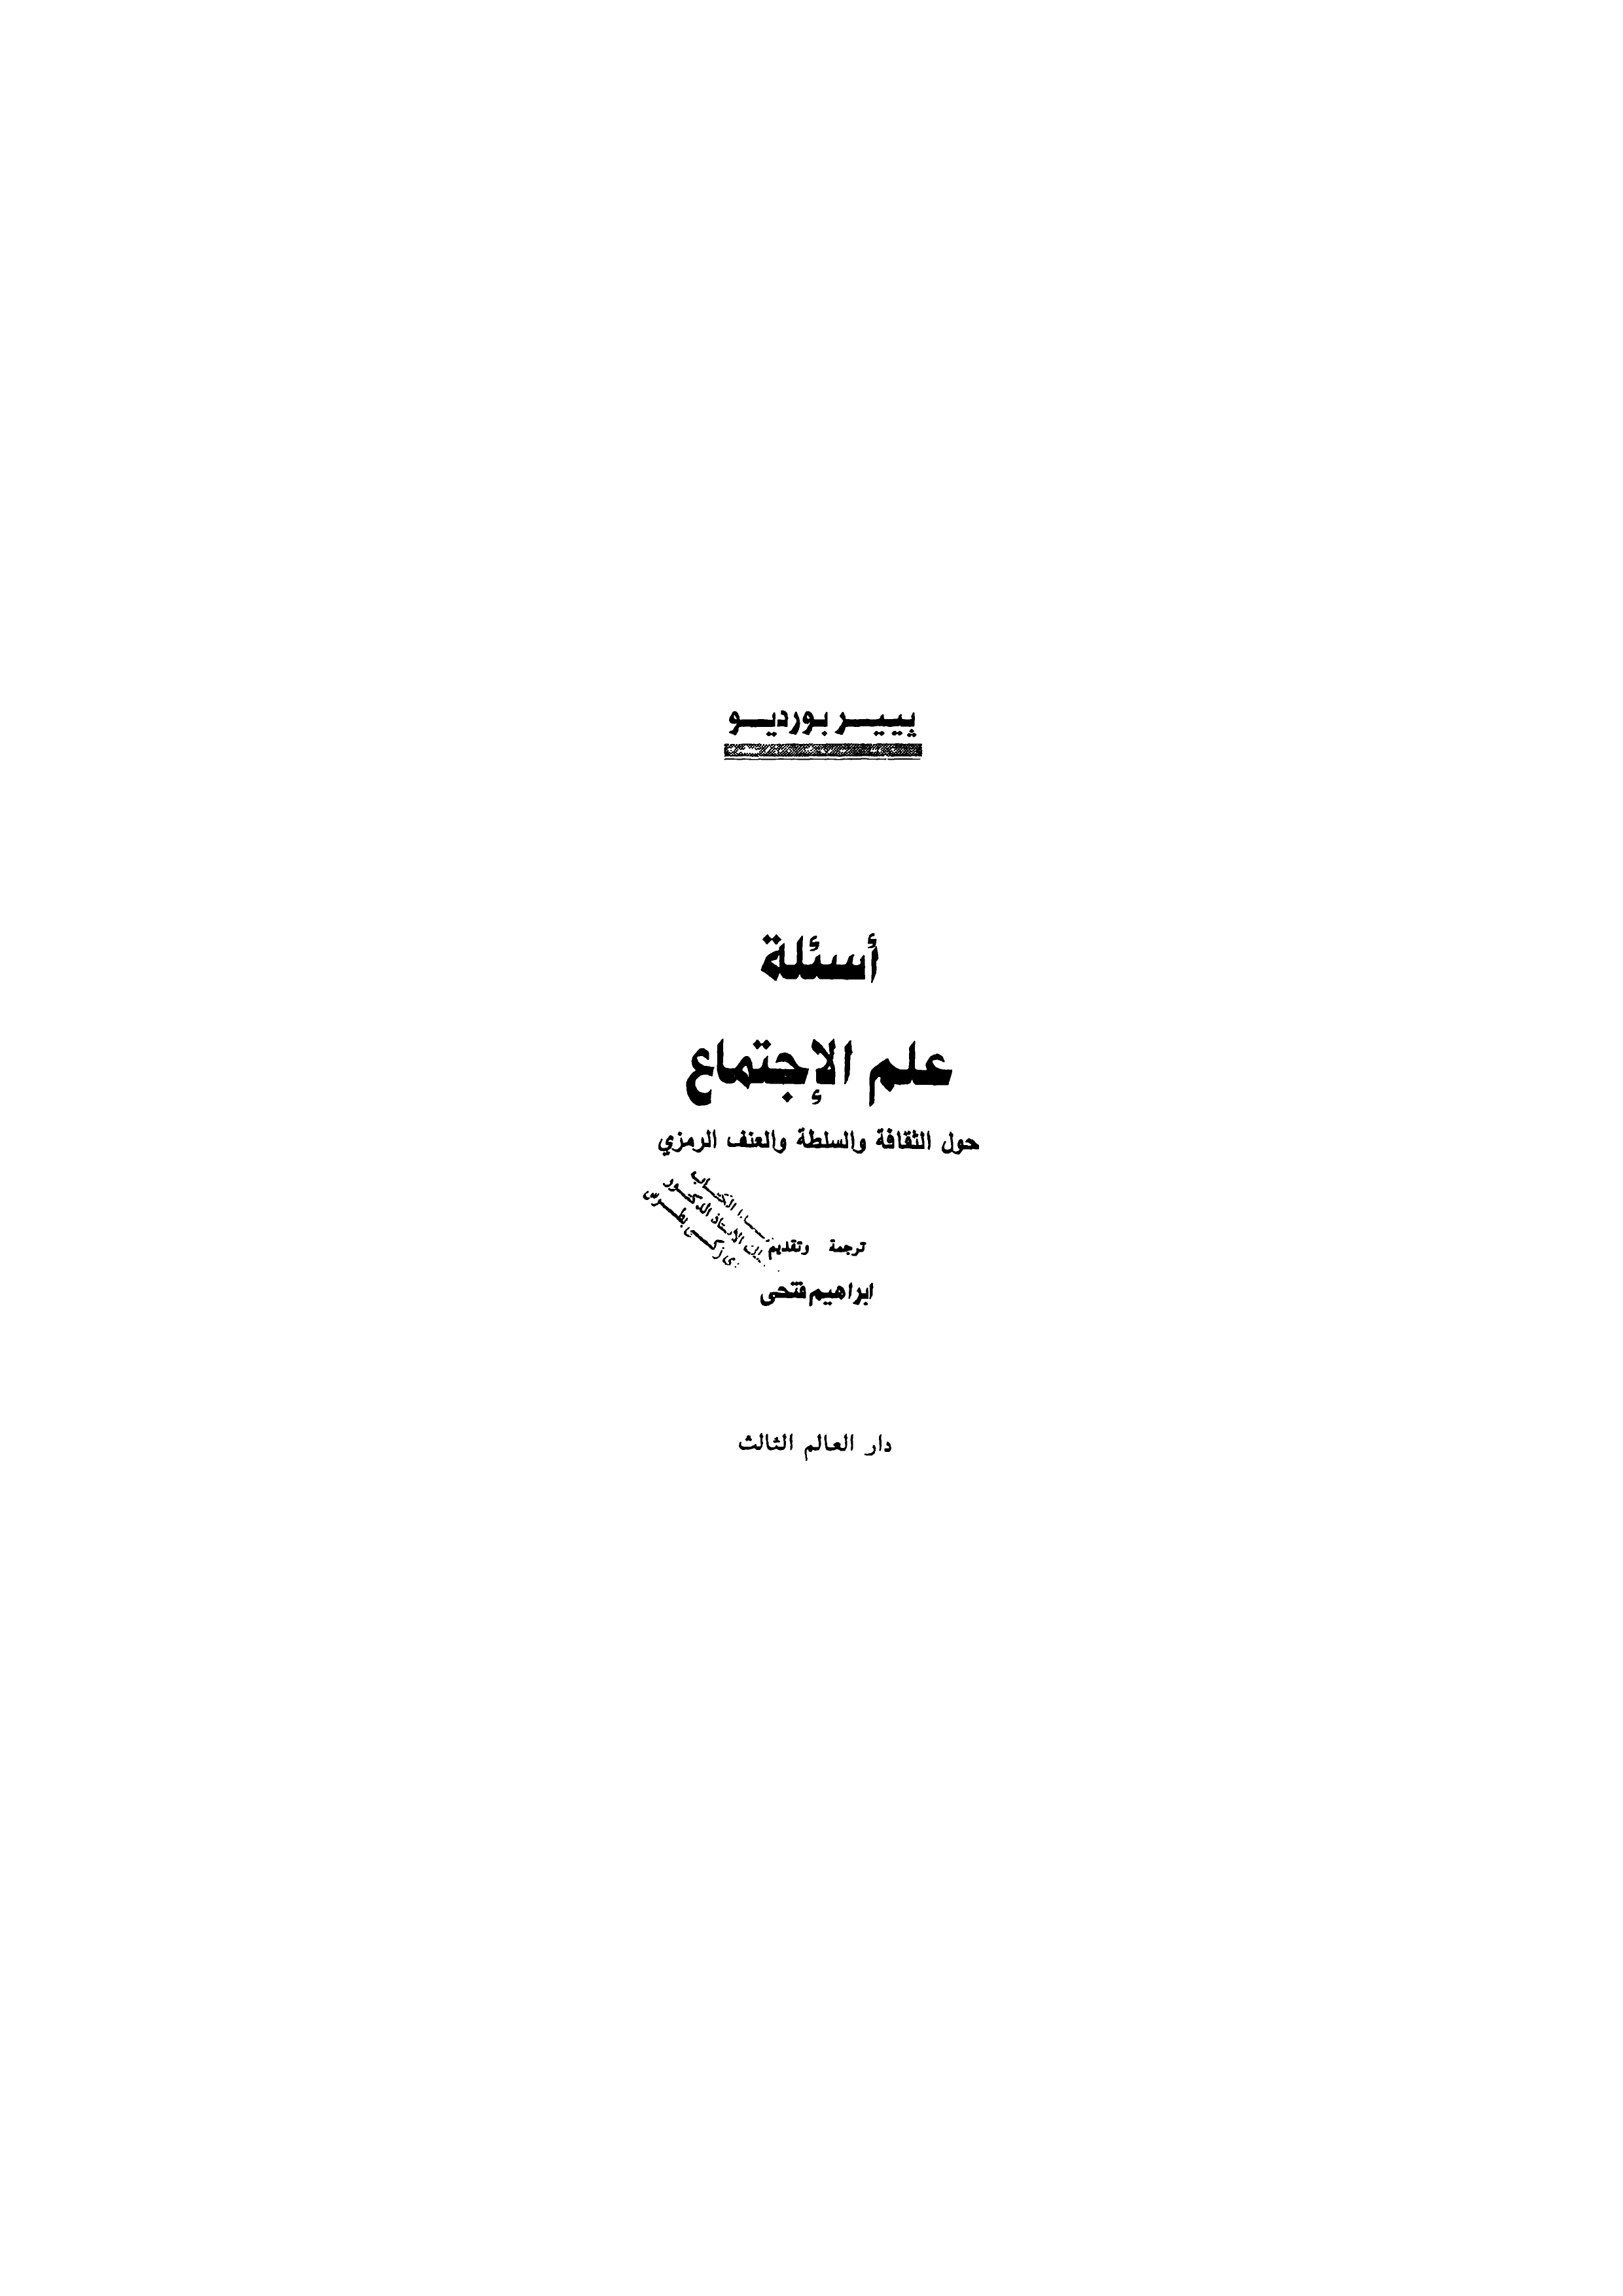 پييـــر بورديـــو
أسئلة
علم الإجتماع
حول الثقافة والسلطة والعنف الرمزي
الكتـــاب
الاستاذ الدكتـــور
زكـــى بطـــرس
ترجمة وتقديم
ابراهيم فتحى
دار العالم الثالث